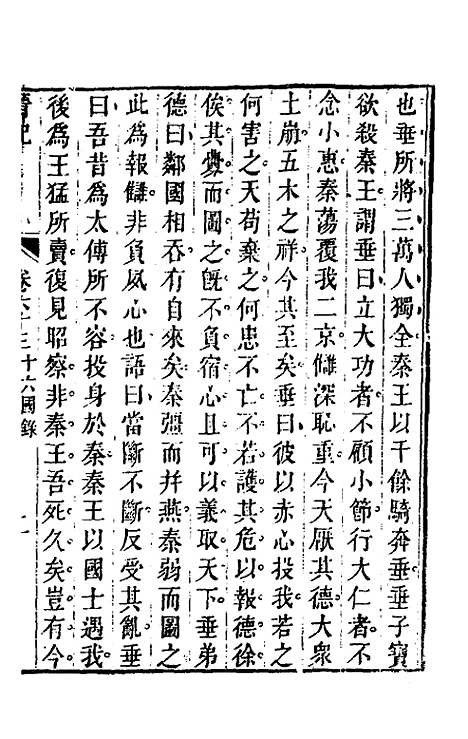 也垂所將三萬人獨全秦王以千餘騎奔垂垂子寶
欲殺秦王謂垂曰立大功者不顧小節行大仁者不
念小惠秦蕩覆我二京讎深恥重今天厭其德大衆
土崩五木之祥今其至矣垂曰彼以赤心投我若之
何害之天苟棄之何患不亡不若護其危以報德徐
俟其釁而圖之旣不負宿心且可以義取天下垂弟
德曰鄰國相吞有自來矣秦彊而并燕秦弱而圖之
此為報讎非負夙心也語曰當斷不斷反受其亂垂
曰吾昔為太傅所不容投身於秦秦王以國士遇我
後為王猛所賣復見昭察非秦王吾死久矣豈有今
晉記
三十六國錄